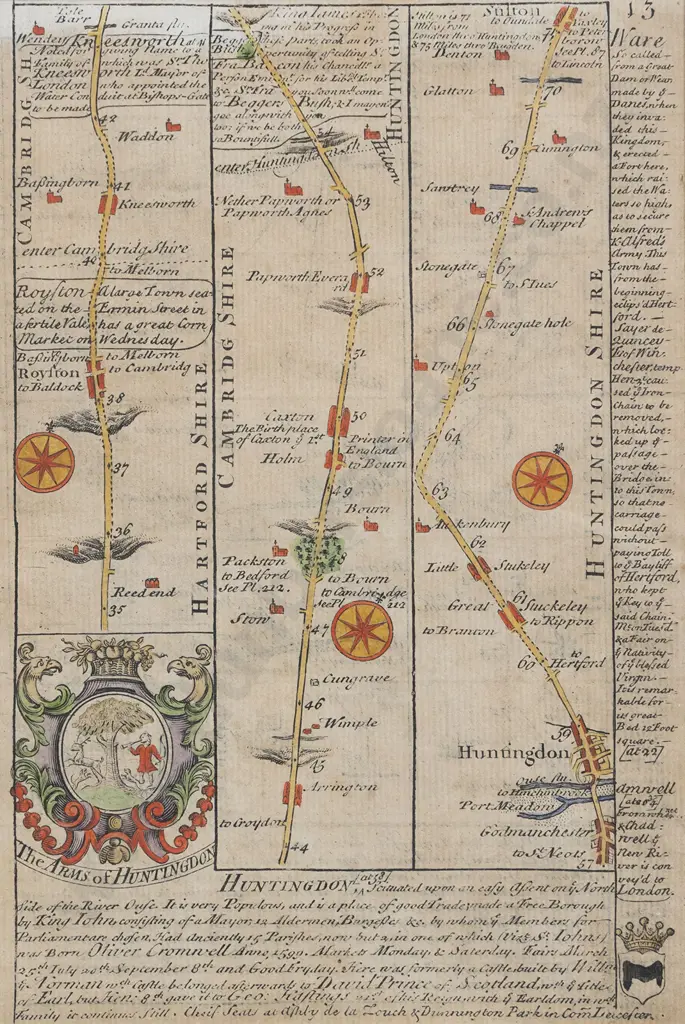 Tole
Barr
Granta flu.
Wendey
Kneesworth at 41
Noted for giving name to a
Family of which was Sr. Tho
Kneesworth Ld. Mayor of
London who appointed the
Water Conduit at Bishops-Gate
to be made
42
Waddon
CAMBRIDG SH.
Bassingborn
41
Kneesworth
enter Cambridg Shire
40
to Melborn
Royston A large Town sea
ted on the Ermin Street in
a fertile Vale has a great Corn
Market on Wednesday.
Bassingborn
to Melborn
Royston
to Cambridg
to Baldock
38
37
36
Reed end
35
HARTFORD SHIRE
The Arms of HUNTINGDON
King James 1st
ing in his Progress in
these parts, took an Op
pertunity of telling Sr.
Fra. Bacon his Chancellr. a
to Beggers Bush, & I may
goe along with you
too; if we be both
so Bountifull.
54
HUNTINGDON
Hilton
enter Huntingdon sh
Nether Papworth or
Papworth Agnes
53
52
Papworth Evera
rd
CAMBRIDG SHIRE
51
50
Caxton
The Birth place
of Caxton ye 1st
Printer in
England
Holm
to Bourn
49
Bourn
Packston
to Bedford
See Pl. 212.
to Bourn
to Cambridge
see Pl 212
Stow
47
Cungrave
46
Wimple
45
Arrington
to Croydon
44
Stilton is 71
Miles from
London thro Huntingdon
& 75 Miles thro Barden.
Stilton
to Oundale
to Yaxley
to Peter
See Pl. 87
to Lincoln
Denton
Glatton
70
69
Cunington
Sawtrey
68
St. Andrew's
Chappel
Stonegate
67
to St Ives
66
Stonegate hole
Upton
65
64
63
HUNTINGDON SHIRE
62
Little Stukeley
Great Stuckeley
61
to Branton
to Rippon
60
to
Hertford
59
Huntingdon
Ouse flu.
to Hinchinbrook
Port Meadow
Godmanchester
to St Neots
57
13
Ware
So called
from a Great
Dam or Wear
made by ye
Danes, when
they inva
ded this
Kingdom,
& erected
a Fort here,
which rai
sed the Wa
ters so high
as to secure
them from
K. Alfred's
Army This
Town has
from the
beginning
eclips'd Hert
ford.
Sayer de
Quincey
E. of Win
chester, temp
Hen. 3d cau
sed ye Iron
Chain to be
removed,
which loc
ked up ye
passage
over the
Bridge in
to this Town
so that no
carriage
could pass
without
paying Toll
to ye Bayliff
of Hertford,
who kept
ye Key to ye
said Chain.
Mt. on Tuesd.
& a Fair on
ye Nativity
of ye blessed
Virgin.
It is remar
kable for
its great
Bed 12 Foot
square.
[at 22]
Amwell
from whence
& Chad
well ye
New Ri
ver is con
vey'd to
London.
HUNTINGDON [at 58] is scituated upon an easy Ascent on ye North
side of the River Ouse. It is very Populous, and is a place of good Trade, made a Free Borough
by King Iohn consisting of a Mayor, 12 Aldermen, Burgesses &c. by whom ye Members for
Parliament are chosen, Had anciently 15 Parishes, now but 2, in one of which (Viz. St. Iohns)
was Born Oliver Cromwell Anno 1599. Markets Monday & Saturday. Fairs March
25th July 20th September 8th and Good Fryday. There was formerly a Castle built by Willm.
ye Norman wch. Castle belonged afterwards to David Prince of Scotland, wth. ye title
of Earl, but Hen: 8th gave it to Geo: Hastings in ye 21st of his Reign, with ye Earldom, in wch.
Family it continues Still. Cheif Seats at Ashby de la Zouch & Dunnington Park in Com Leicester.